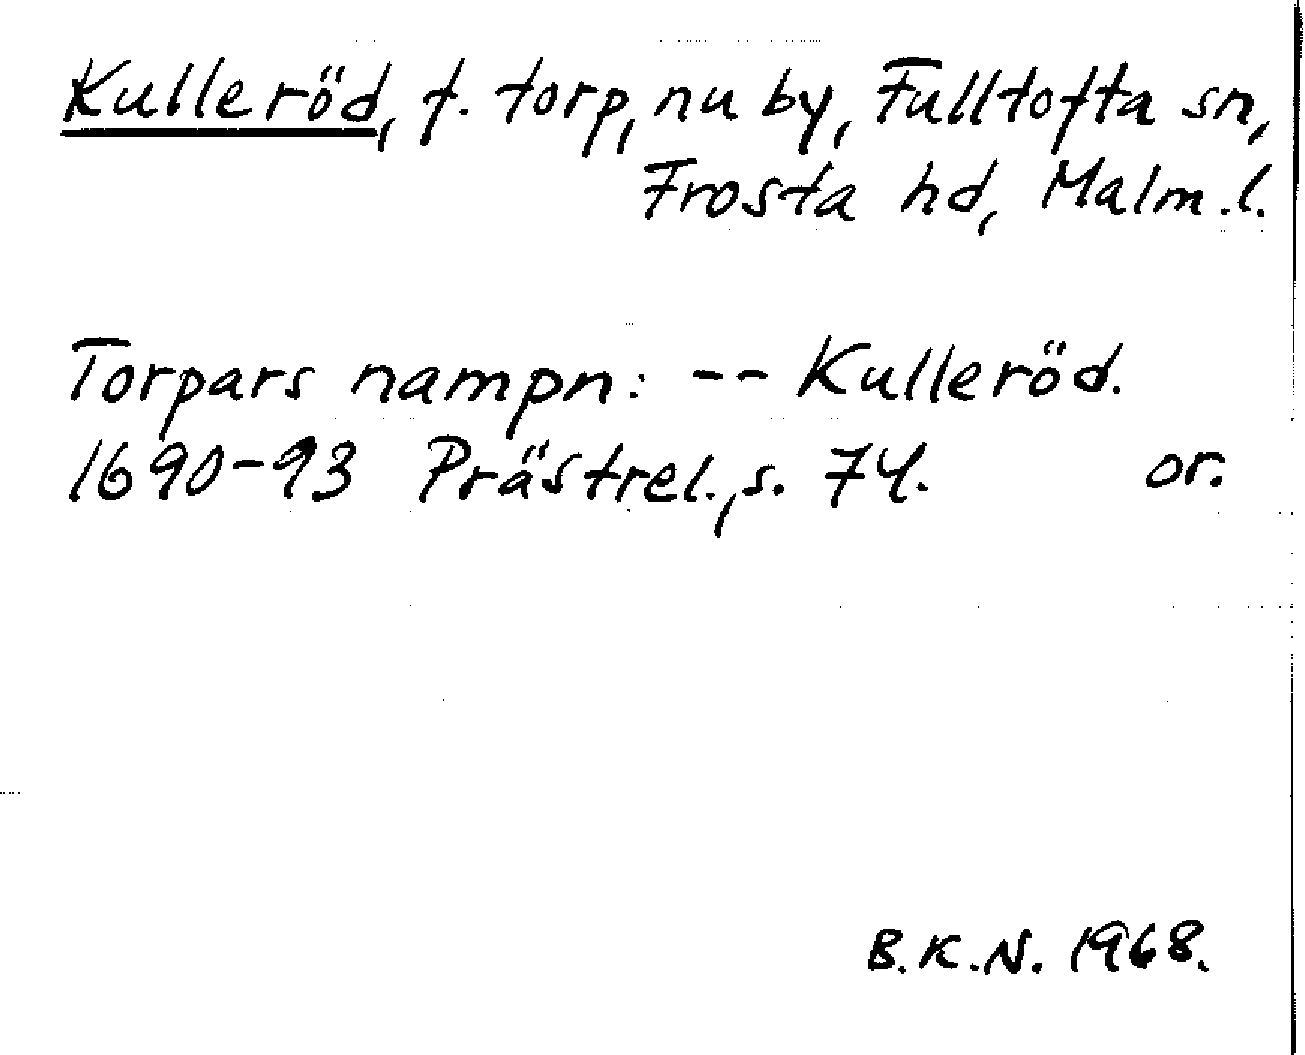 Kulleröd, f. torp, nu by, Fulltofta sn,
Frosta hd, Malm.l.
Torpars nampn: -- Kulleröd.
1690-93 Prästrel., s. 74. or.
B.K.N. 1968.